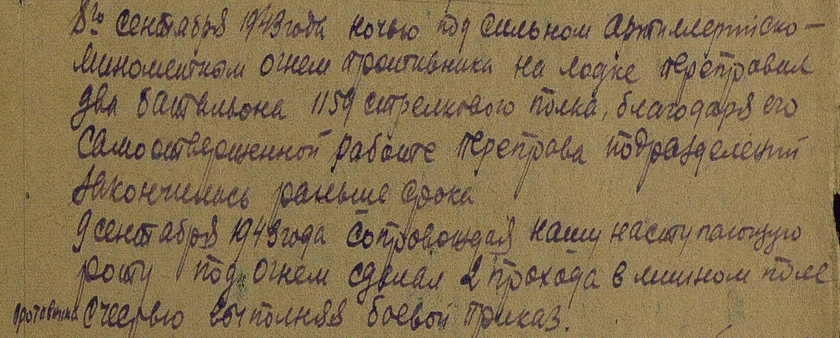 8го сентября 1943 года ночью под сильном Артиллерийско-
миномётном огнем противника на лодке переправил
два баталиона 1159 стрелкового полка, благодаря его
самоотверженной работе переправа подразделений
закончилась раньше срока
9 сентября 1943 года сопровождая нашу наступающую
роту под огнем сделал 2 прохода в минном поле
противника с честью выполняя боевой приказ.